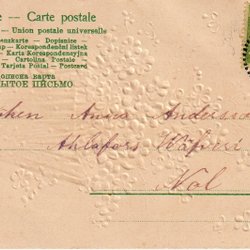 e – Carte postale
– Union postale universelle
enskarte – Dopisnice
ap – Korespondenční lístek
– Karta Korespondencyjna
– Cartolina Postale
Tarjeta Postal – Postcard
описна карта
ЫТОЕ ПИСЬМО
oken Anna Andersson
Ahlafors Häfveri
Nol